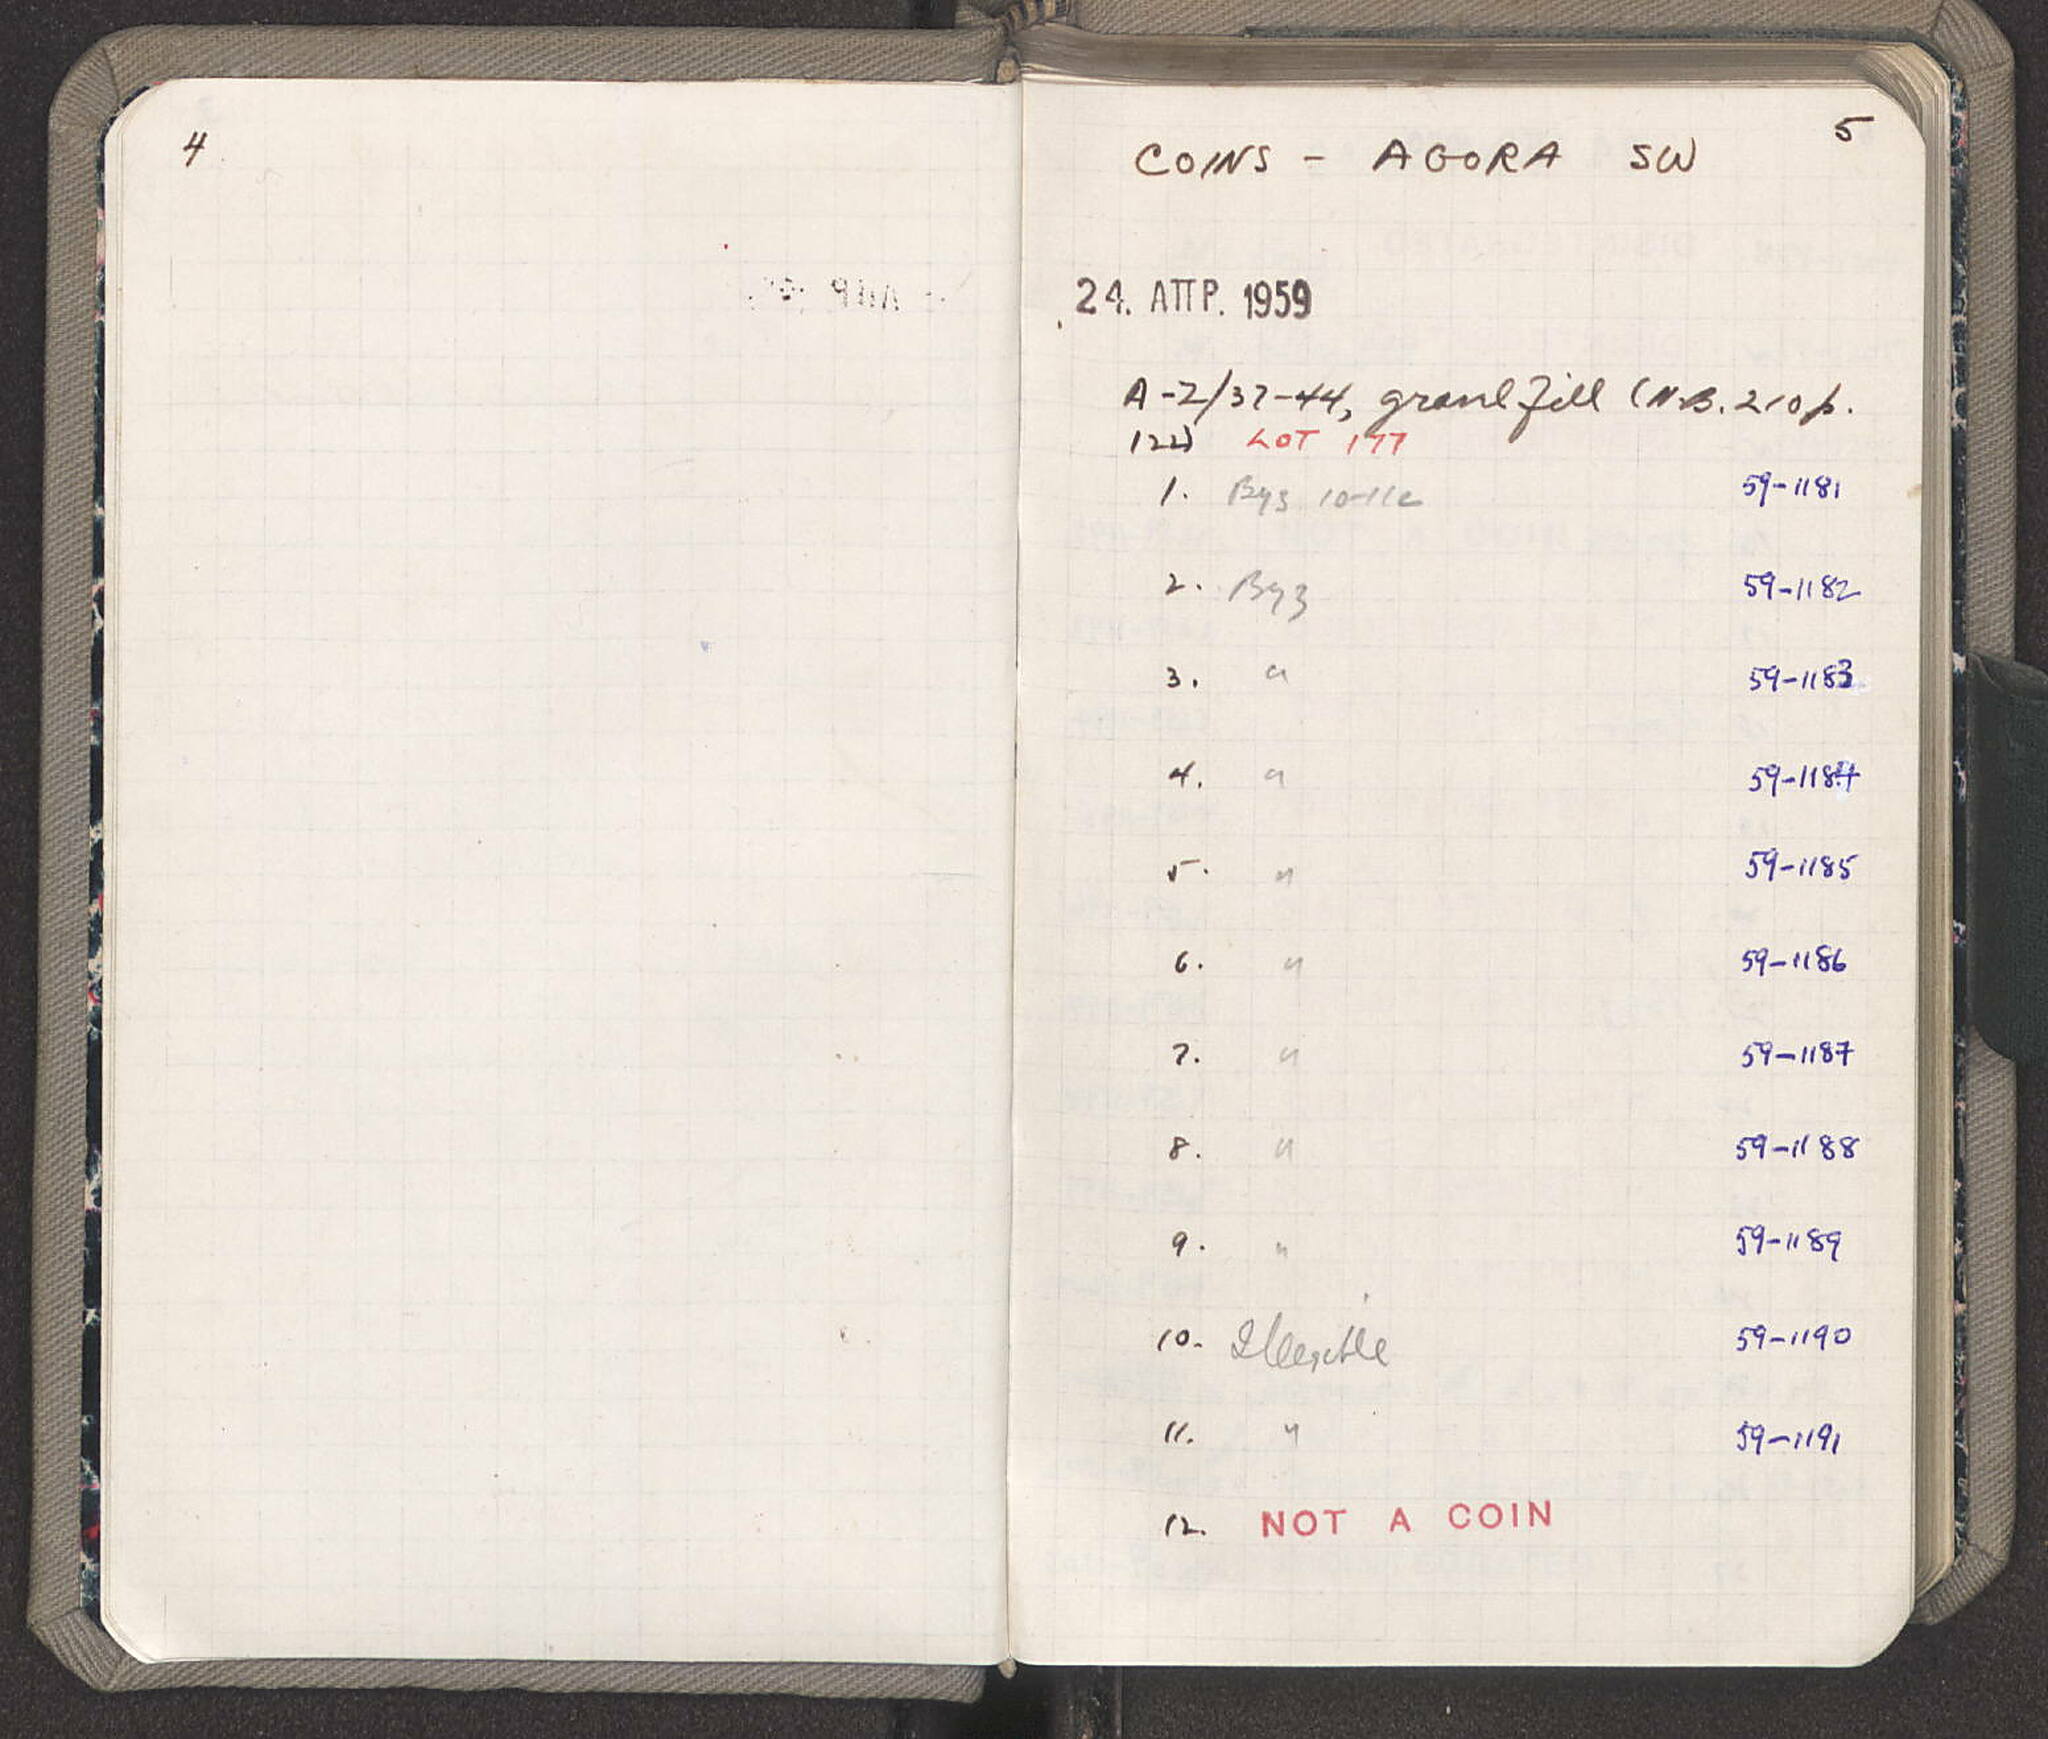 4
5
COINS - AGORA SW
24. ΑΠΡ. 1959
A-Z/37-44, gravel fill (N.B. 210 p.
122) LOT 177
1. Byz 10-11c 59-1181
2. Byz 59-1182
3. " 59-1183
4. " 59-1184
5. " 59-1185
6. " 59-1186
7. " 59-1187
8. " 59-1188
9. " 59-1189
10. Illegible 59-1190
11. " 59-1191
12. NOT A COIN